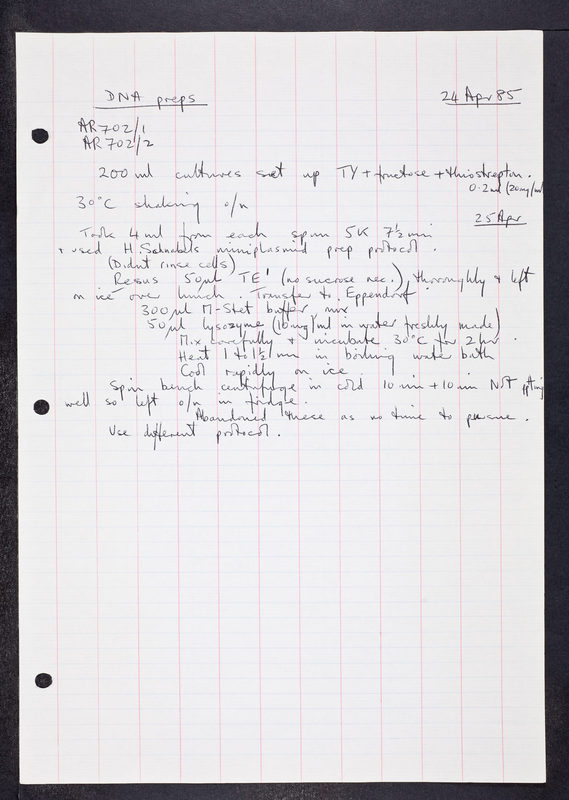 DNA preps 24 Apr 85
AR702/1
AR702/2
200 ml cultures set up TY + fructose + thiostrepton.
0.2ml (20mg/ml
30°C shaking o/n
25 Apr
Took 4 ml from each spun 5K 7½ min
+ used H. Schnabels miniplasmid prep protocol.
(Didnt rinse cells)
Resus 50µl TE' (no sucrose nec.), thoroughly & left
on ice over lunch. Transfer to Eppendorf.
300µl M-Stet buffer, mix
50µl lysozyme (10mg/ml in water freshly made)
Mix carefully & incubate 30°C for 2 hr.
Heat 1 to 1½ min in boiling water bath
Cool rapidly on ice.
Spin bench centrifuge in cold 10 min + 10 min Not
well so left o/n in fridge.
Abandoned these as no time to pursue.
Use different protocol.